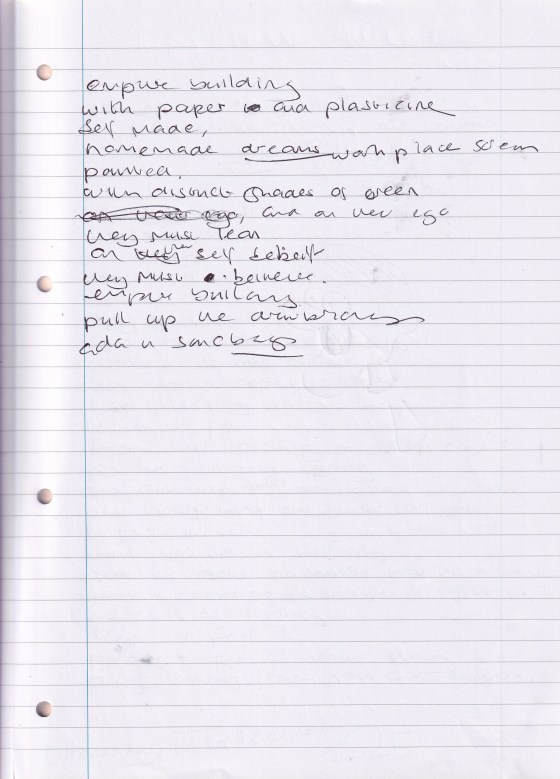 empire building
with paper and plasticine
self made,
homemade dreams workplace scien
painted.
with distinct shades of green
and on her ego
they must lean
on self
they must believe.
empire building
pull up the drawbridge
add a sandbag